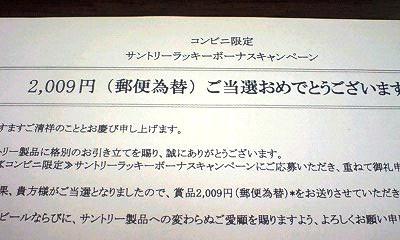 コンビニ限定
サントリーラッキーボーナスキャンペーン
2,009円（郵便為替）ご当選おめでとうございます
すますご清祥のこととお慶び申し上げます。
トリー製品に格別のお引き立てを賜り、誠にありがとうございます。
≪コンビニ限定≫サントリーラッキーボーナスキャンペーンにご応募いただき、重ねて御礼申
果、貴方様がご当選となりましたので、賞品2,009円（郵便為替）*をお送りさせていただき
ビールならびに、サントリー製品への変わらぬご愛顧を賜りますよう、よろしくお願い申